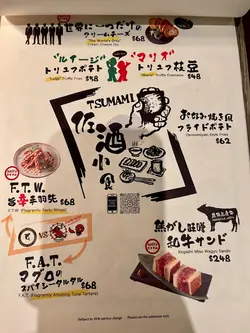 世界に一つだけの
クリームチーズ
"The World's Only"
Cream Cheese Dip
$68
"ルイージ"
トリュフポテト
"Luigi" Truffle Fries
$68
"マリオ"
トリュフ枝豆
"Mario" Truffle Edamame
$48
TSUMAMI
佐酒小食
お好み焼き風
フライドポテト
Okonomiyaki Style Fries
$62
F.T.W.
旨辛手羽先
F.T.W. (Flagrantly Tasty Wings)
$68
VS
F.A.T.
マグロの
スパイシータルタル
F.A.T. (Flagrantly Amazing Tuna Tartare)
$68
焦がし味噌
和牛サンド
Kogashi Miso Wagyu Sando
$248
Subject to 10% service charge